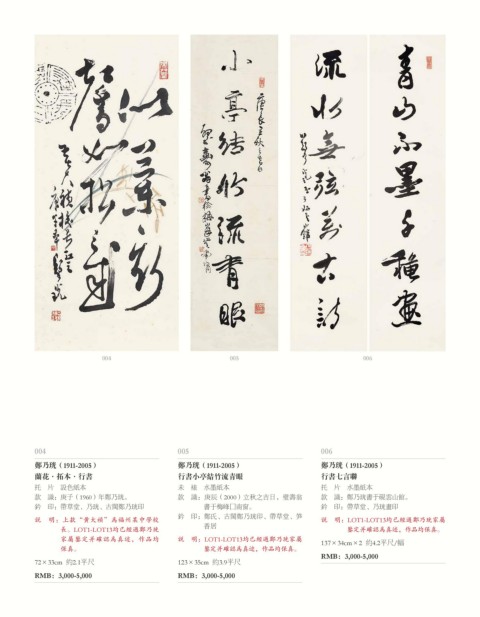 青山不墨千穐畫
流水無弦萬古詩
小亭結竹流青眼
004
005
006
004
鄭乃珖（1911-2005）
蘭花·拓本·行書
托 片 設色紙本
款 識：庚子（1960）年鄭乃珖。
鈐 印：帶草堂、乃珖、古閩鄭乃珖印
說 明：上款“黄大禎”為福州某中學校
長。LOT1-LOT13均已經過鄭乃珖家
屬鑒定并確認為真迹，作品均
保真。
72×33cm 約2.1平尺
RMB：3,000-5,000
005
鄭乃珖（1911-2005）
行書小亭結竹流青眼
未 裱 水墨紙本
款 識：庚辰（2000）立秋之吉日。璧壽翁
書于梅峰口南窗。
鈐 印：鄭氏、古閩鄭乃珖印、帶草堂、笋
香居
說 明：LOT1-LOT13均已經過鄭乃珖家屬
鑒定并確認為真迹，作品均保真。
123×35cm 約3.9平尺
RMB：3,000-5,000
006
鄭乃珖（1911-2005）
行書七言聯
托 片 水墨紙本
款 識：鄭乃珖書于硯雲山館。
鈐 印：帶草堂、乃珖畫印
說 明：LOT1-LOT13均已經過鄭乃珖家屬
鑒定并確認為真迹，作品均保真。
137×34cm×2 約4.2平尺/幅
RMB：3,000-5,000